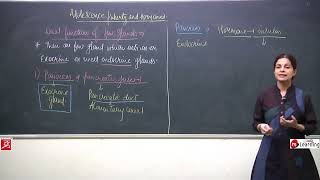 Adolescence, puberty and hormones
Dual function of few glands →
* There are few gland which acts as an
Exocrine as well endocrine glands.
1) Pancreas & pancreatic juice →
Exocrine
gland
Pancreatic duct
Alimentary canal
Pancreas → Hormone → insulin
Endocrine
Learning